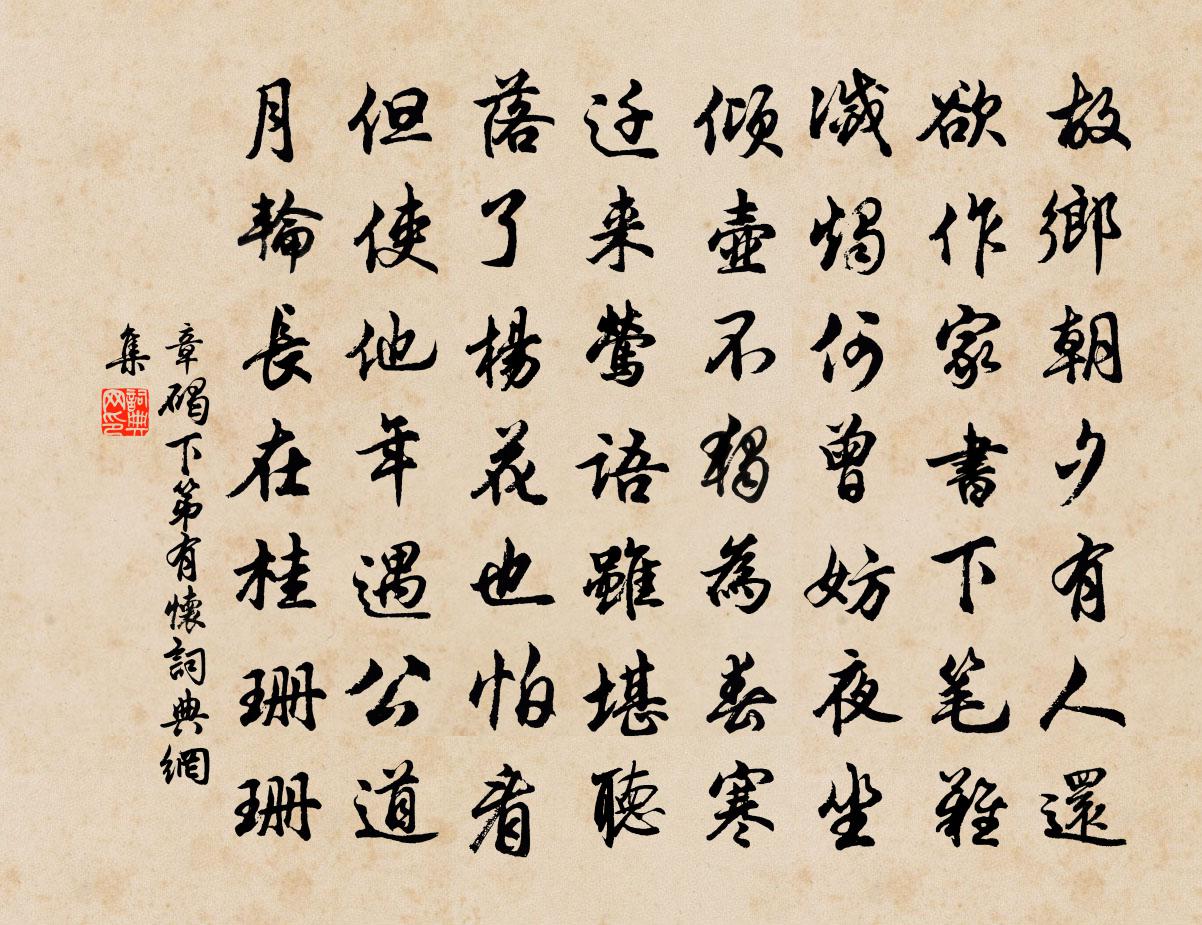 故鄉朝夕有人還
欲作家書下笔難
滅燭何曾妨夜坐
傾壺不獨為春寒
迁来鶯語雖堪聽
落了楊花也怕看
但使他年遇公道
月輪長在桂珊珊
章碣下第有懷詞典網
集
詞典網印